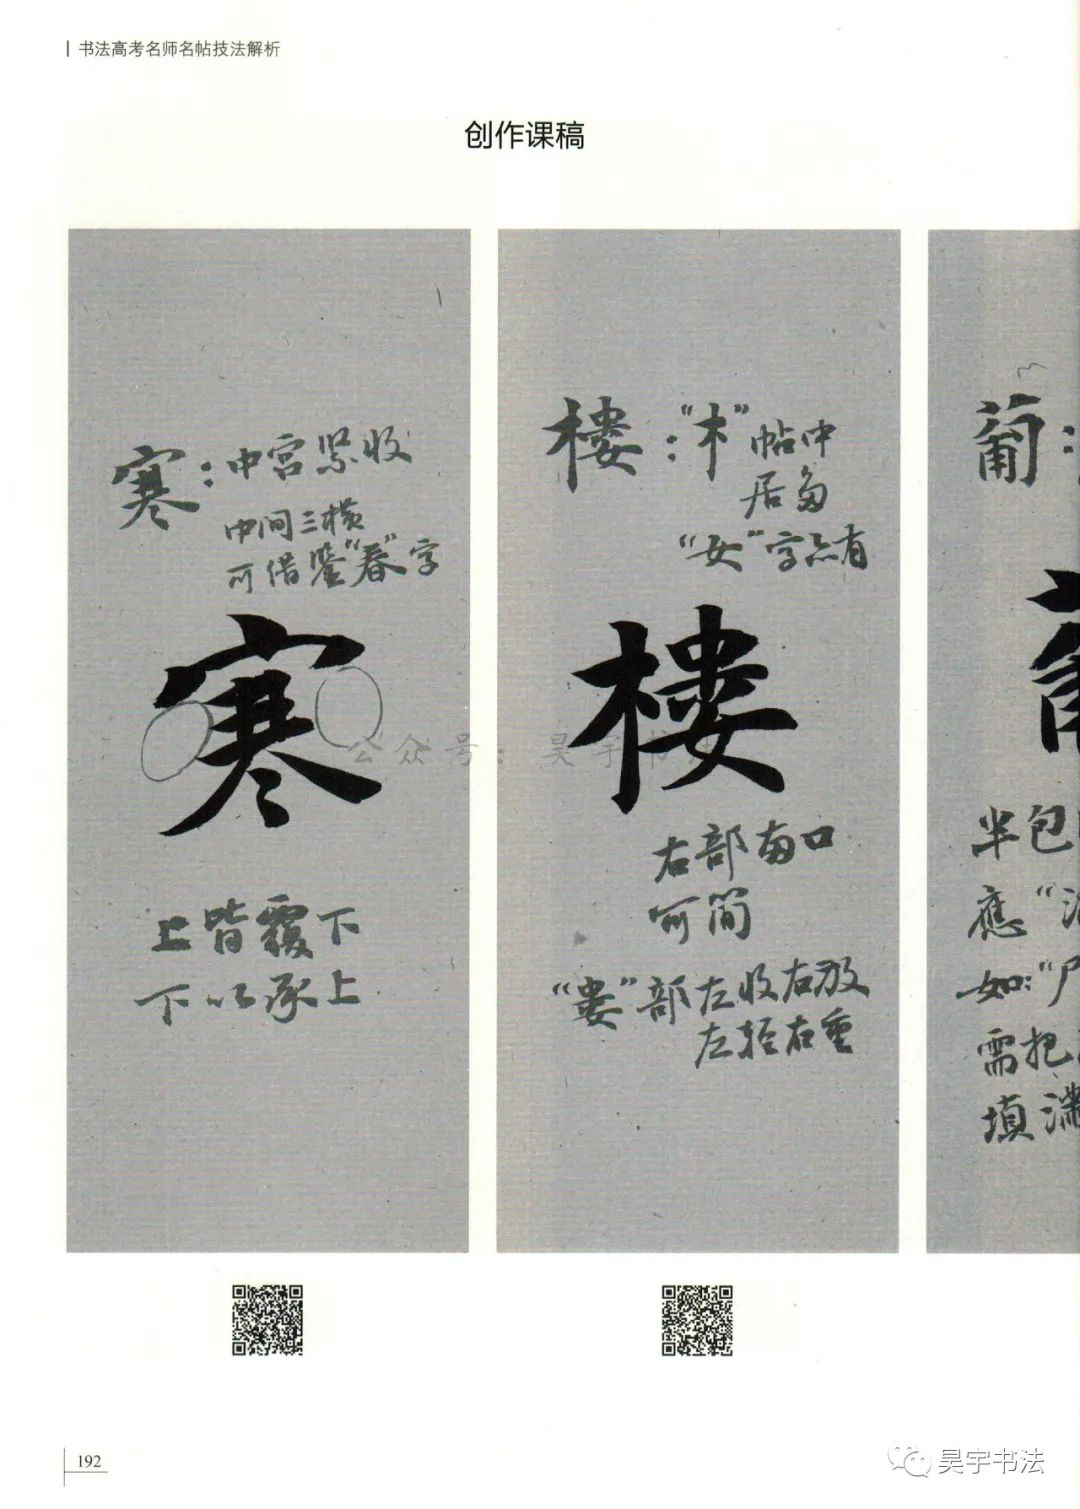 书法高考名师名帖技法解析
创作课稿
寒：中宫紧收
中间三横
可借鉴“春”字
寒
上皆覆下
下以承上
楼：“木”帖中
居多
“女”字亦有
楼
右部两口
可简
“娄”部左收右放
左轻右重
葡：
半包
應“
如：“尸
需把
填满
公众号：昊宇书法
192
昊宇书法